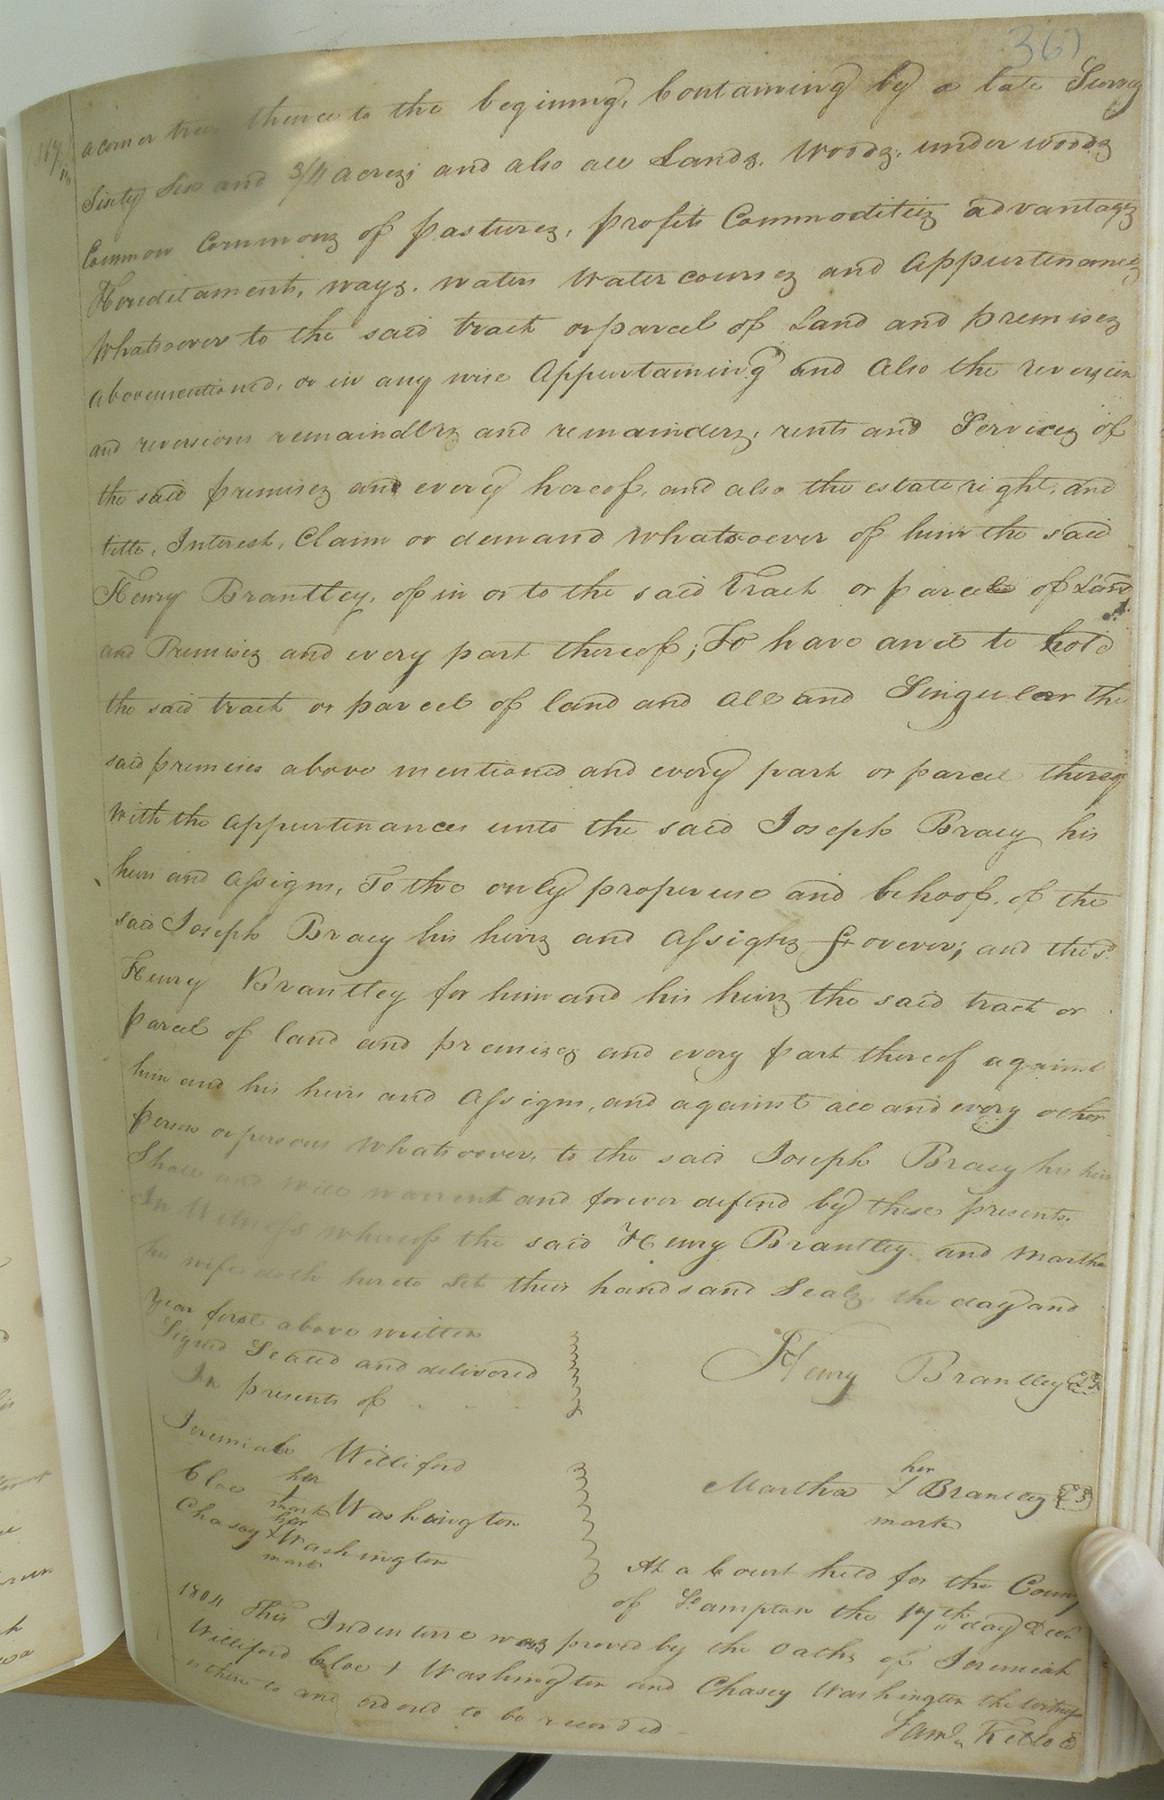 367
a corner tree thence to the begining, Containing by a late Survey
Sixty Six and 3/4 acrezs and also all Landz. Woodz. under woodz
Common Commonz of pasturez, profits Commoditiez advantagz
Hereditaments, wayz. waters Water coursez and Appurtenancez
Whatsoever to the said tract or parcel of Land and premisez
abovementioned, or in any wise Appurtaining and Also the reversion
and reversions remainderz and remainderz, rents and Servicez of
the said premisez and every hereof, and also the estate right, and
title, Interest, Claim or demand Whatsoever of him the said
Henry Brantley, of in or to the said Tract or parcele of Land
and Premisez and every part thereof; To have and to hold
the said tract or parcel of land and all and Singular the
said premises above mentioned and every part or parcel thereof
With the appurtenances unto the said Joseph Bracy his
heirs and assigns, To the only proper use and behoof. of the
said Joseph Bracy his heirz and Assignz forever; and the sd.
Henry Brantley for him and his heirz the said tract or
parcel of land and premizez and every part thereof against
him and his heirs and assigns, and against all and every other
person or persons Whatsoever, to the said Joseph Bracy his heirs
Shall and will warrent and forever defend by these presents.
In Witness whereof the said Henry Brantley. and Martha
his wife doth hereto Set their hands and Sealz the day and
Year first above written
Signd Sealed and delivered
In presents of
Henry Brantley LS
Jeremiah Williford
her
Cloe + Washington
mark
her
Chasey + Washington
mark
her
Martha + Brantley LS
mark
At a Court held for the County
of S.ampton the 17th day Decr
1804 This Indenture waz proved by the Oaths of Jeremiah
Williford Cloe + Washington and Chasey Washington the witness
thereto and ordered to be recorded
Saml. Kello